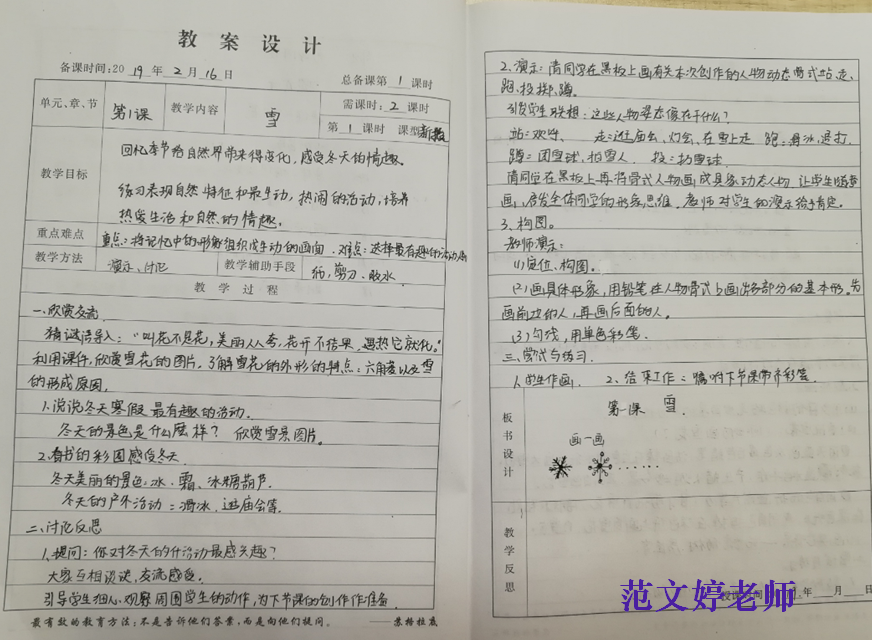 教案设计
备课时间:2019年2月16日
总备课第1课时
单元、章、节 第1课 教学内容 雪 需课时:2课时
第1课时 课型 新教
教学目标
回忆冬节给自然界带来得变化,感受冬天的情趣。
练习表现自然特征和最生动,热闹的活动,培养
热爱生活和自然的情趣。
重点难点 重点:将记忆中的形象组织成生动的画面.难点:选择最有趣的活动
教学方法 演示、讨论 教学辅助手段 纸,剪刀.胶水.
教学过程
一.欣赏交流
猜谜语导入:“叫花不是花,美丽人人夸,花开不结果,遇热它就化。”
利用课件,欣赏雪花的图片,了解雪花的外形的特点:六角度以及雪
的形成原因.
1.说说冬天寒假最有趣的活动.
冬天的景色是什么样? 欣赏雪景图片.
2.看书的彩图感受冬天.
冬天美丽的景色,冰、霜、冰糖葫芦.
冬天的户外活动:滑冰,逛庙会等.
二、讨论反思
1.提问:你对冬天的什活动最感兴趣?
大家互相谈谈,交流感受.
引导学生细心、观察周围学生的动作,为下节课的创作作准备.
最有效的教育方法:不是告诉他们答案,而是向他们提问。——苏格拉底
2.演示:请同学在黑板上画有关本次创作的人物动态骨式站、走、
跑、投掷、蹲。
引发学生联想:这些人物姿态像在干什么?
站:欢呼、 走:逛庙会、灯会、在雪上走 跑:滑冰、追打.
蹲:团雪球,拍雪人. 投:扔雪球.
请同学在黑板上再将骨式人物画成具象动态人物,让学生随意
画,启发全体同学的形象思维.教师对学生的演示给予肯定.
3.构图。
教师演示:
(1)定位、构图。
(2)画具体形象,用铅笔在人物骨式上画出各部分的基本形。先
画前边的人,再画后面的人。
(3)勾线,用单色彩笔.
三、尝试与练习.
1.学生作画. 2.结束工作:嘱咐下节课带齐彩笔.
板书设计
第一课 雪.
画一画
……
教学反思
授课时间 年 月 日
范文婷老师